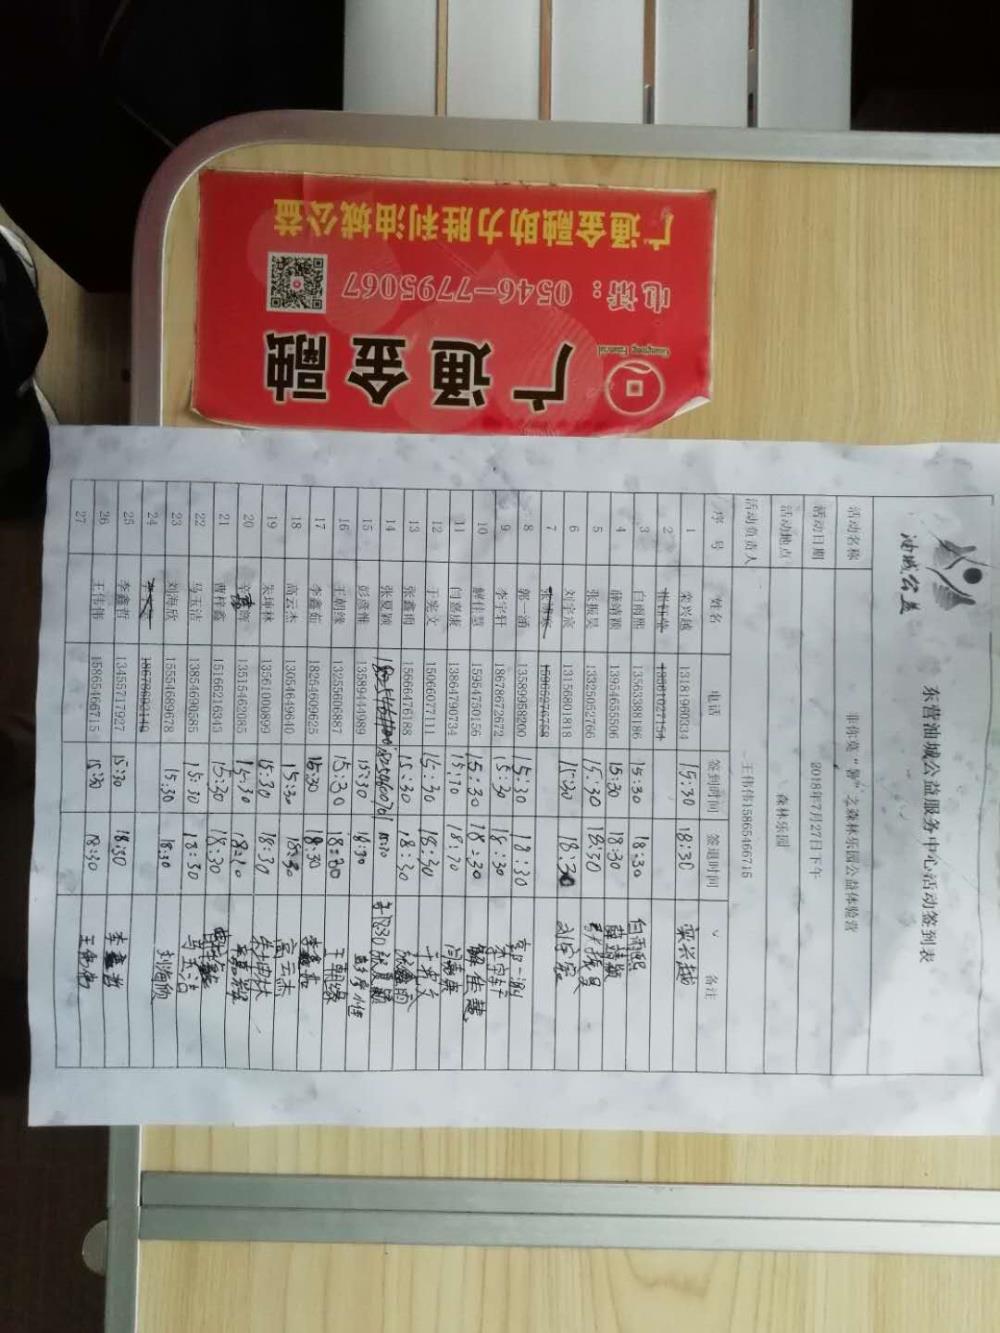 广通金融助力胜利油城公益
电话：0546-7795067
广通金融
Guangtong Financial
油城公益
东营油城公益服务中心活动签到表
活动名称 非你莫“暑”之森林乐园公益体验营
活动日期 2018年7月27日下午
活动地点 森林乐园
活动负责人 王伟伟15865466715
序号 姓名 电话 签到时间 签退时间 备注
1 荣兴越 13181960334 15:30 18:30 荣兴越
2
3 白雨熙 13563388186 15:30 18:30 白雨熙
4 薛靖颖 13954655506 15:30 18:30 薛靖颖
5 张振昊 13325052766 15:30 18:30 张振昊
6 刘宇宸 13156801818 15:30 18:30 刘宇宸
7
8 郭一涵 13589958200 15:30 18:30 郭一涵
9 李宇轩 18678672672 15:30 18:30 李宇轩
10 解佳慧 15954750156 15:30 18:30 解佳慧
11 闫嘉康 13864790734 15:30 18:30 闫嘉康
12 于宪文 15066077111 15:30 18:30 于宪文
13 张鑫雨 15666476188 15:30 18:30 张鑫雨
14 张夏颖 18:30 张夏颖
15 彭彦维 13589444989 15:30 18:30 彭彦维
16 王朝缘 13255606887 15:30 18:30 王朝缘
17 李鑫茹 18254609625 15:30 18:30 李鑫茹
18 高云杰 13054649640 15:30 18:30 高云杰
19 朱珅林 13561000899 15:30 18:30
20 13515462085 15:30 18:30
21 曹梓鑫 15166216343 15:30 18:30
22 马玉洁 13854690585 15:30 18:30 马玉洁
23 刘海欣 15554689678 15:30 18:30 刘海欣
24
25 李鑫哲 13455717927 15:30 18:30 李鑫哲
26 王伟伟 15865466715 15:30 18:30 王伟伟
27